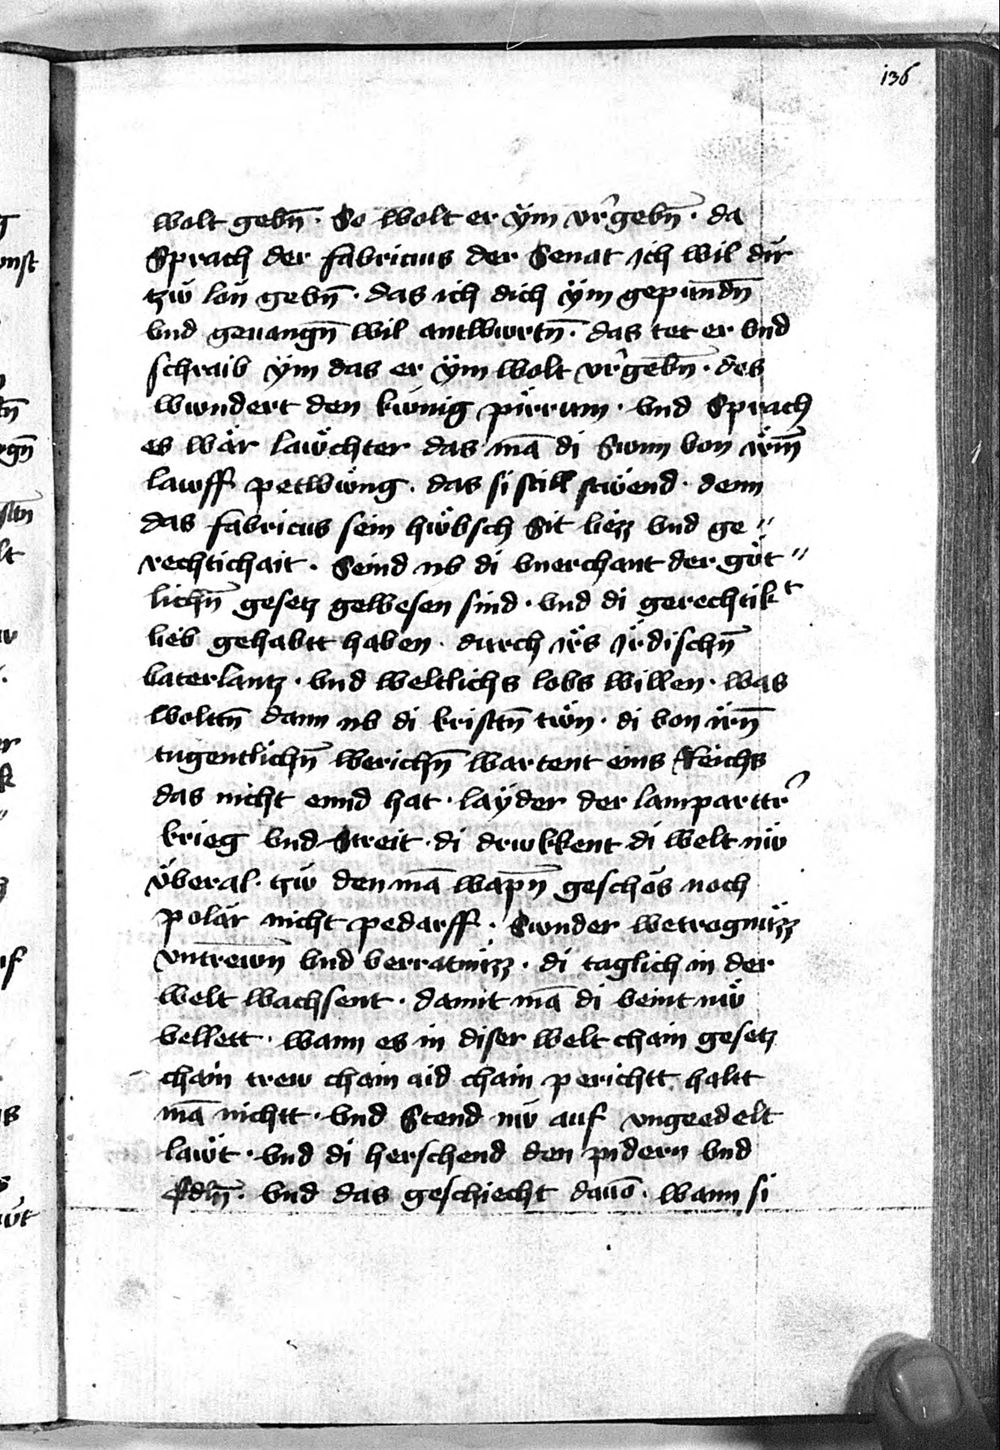 136
wolt gebn̄ · So wolt er ẏm vr̉gebn̄ · da
Sprach der fabricius der Senat ich wil dir
tzw̄ lon̄ gebn̄ · das ich dich ẏm gepundn̄
vnd geuangn̄ wil antwurtn̄ · das tet er vnd
schraib ẏm das er ẏm wolt vr̉gebn̄ · des
wundert den kwnig pirrum · vnd Sprach
es wär lawchter das mā di Sunn von irm̄
lawff petwung · das si still stwend · denn
das fabricius sein hwbsch Sit liezz vnd ge〃
rechtichait · Seind nv di vnerchant der göt〃
lichn̄ gesetz gewesen sind · vnd di gerechtikt
lieb gehabtt haben · durch irs irdischn̄
vaterlantz · vnd weltlichs lobs willen · was
woltn̄ dann nv di kristn̄ twn · di von irn̄
tugentlichn̄ werichn̄ wartent eins Reichs
das nicht ennd hat · laÿder der lamparttr̉
krieg vnd Streit · di drukkent di welt nw
vberal · tzw den mā wapn̄ geschos noch
polär nicht pedarff · Sunder wetrognuzz
vntrewn vnd verratnizz · di täglich in der
welt wachsent · damit mā di veint nw
vellett · wann es in diser welt chain gesetz
chain trew chain aid chain perichtt haltt
mā nichtt · vnd Stend nw auf vngeedelt
lawt · vnd di herschend den pidern vnd
Edln̄ · vnd das geschiecht dauō · wann si